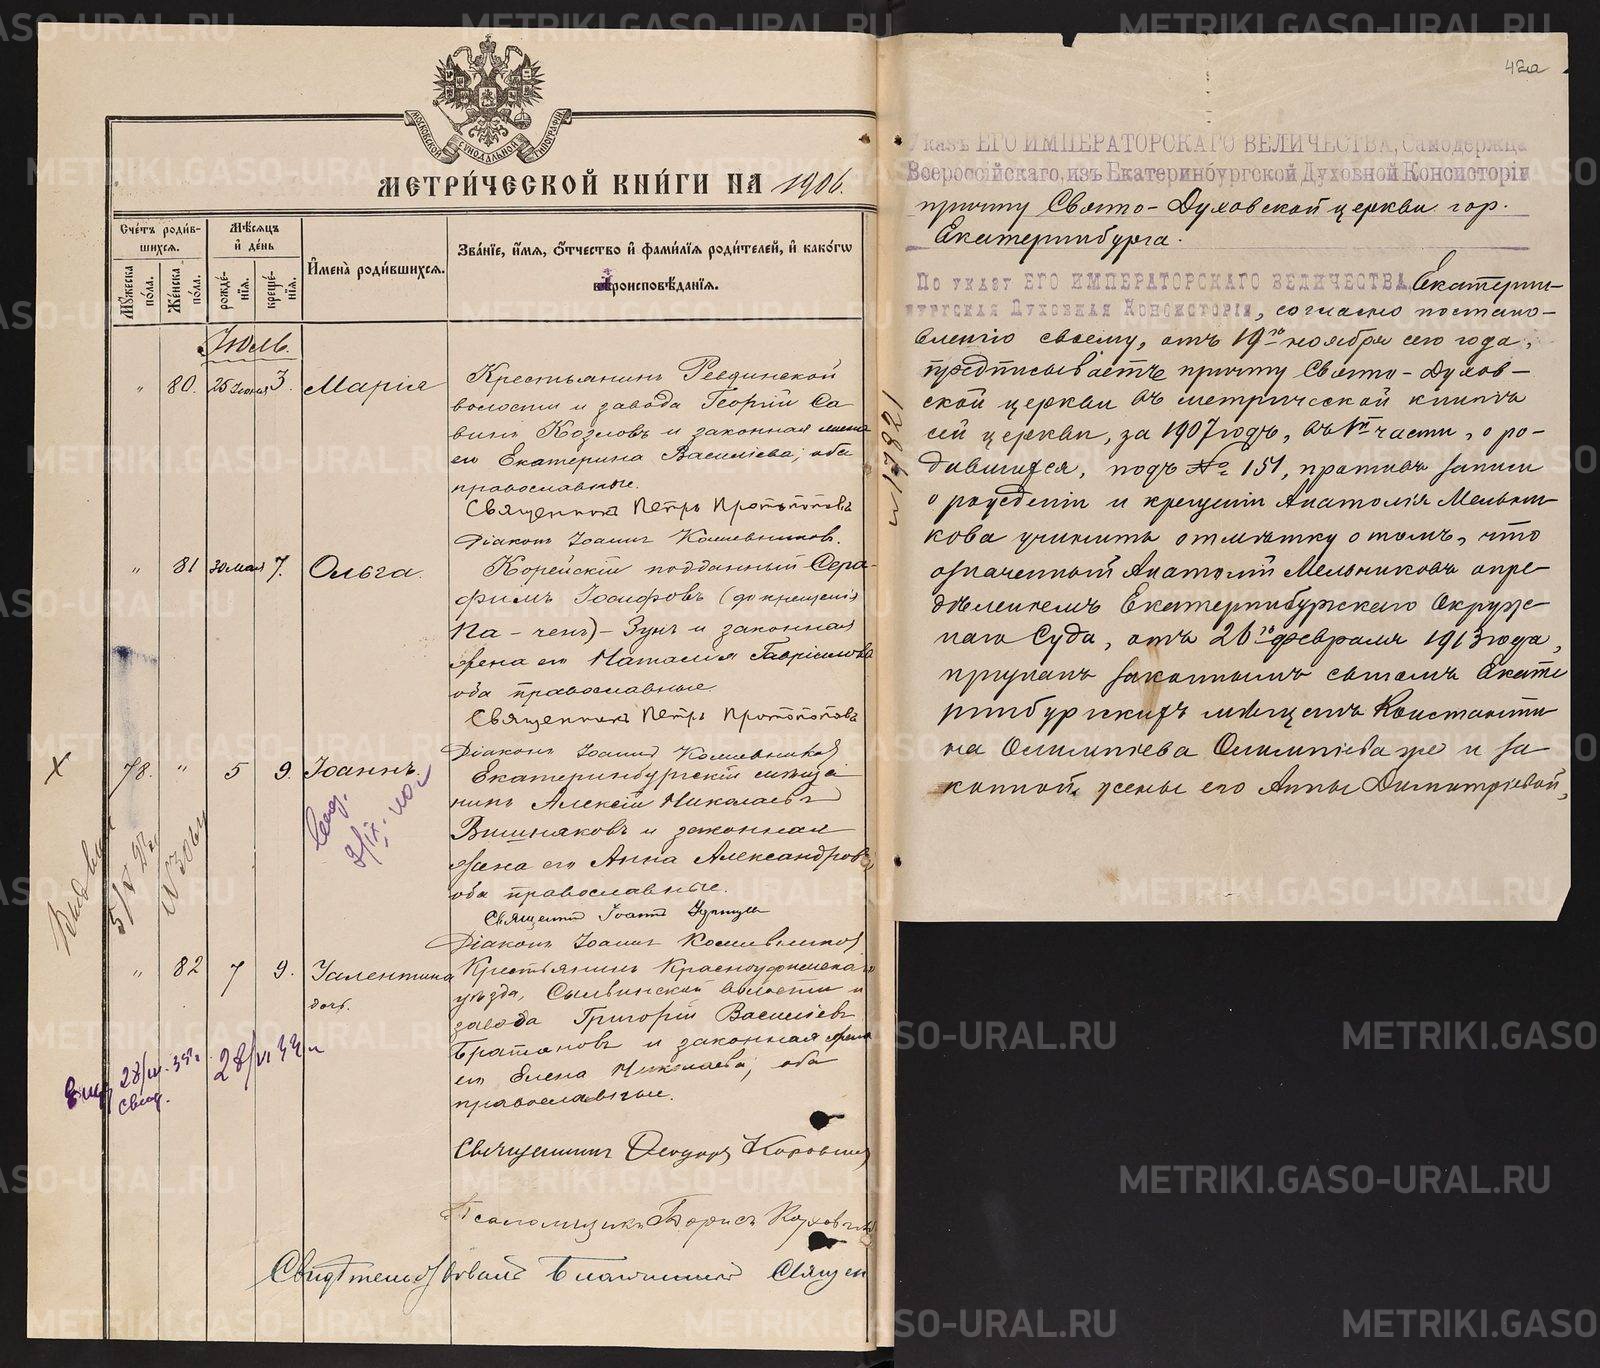 МЕТРИ́ЧЕСКОЙ КНИ́ГИ НА 1906.
МОСКОВСКОЙ СѴНОДАЛЬНОЙ ТИПОГРАФІИ
Сче́тъ роди́в-
шихся.
Мѣ́сяцъ
и҆ де́нь
И҆мена̀ роди́вшихся.
Зва́нїе, и҆́мѧ, ѻ҆́тчество и҆ фами́лїѧ роди́телей, и҆ како́гѡ
вѣроисповѣ́данїѧ.
Мꙋ́жеска по́ла.
Же́нска по́ла.
рожде́-
нїѧ.
креще́-
нїѧ.
Іюль.
" 80. 25 Іюня 3. Марія
Крестьянинъ Ревдинской
волости и завода Георгій Са
винъ Козловъ и законная жена
его Екатерина Васильева; оба
православные.
Священникъ Петръ Протопоповъ
Діаконъ Іоаннъ Кошевниковъ.
" 81 30 мая 7. Ольга.
Корейскій подданный Сера-
фимъ Іосифовъ (до крещенія
Па-ченъ)-Зунъ и законная
жена его Наталія Гавріилова
оба православные
Священникъ Петръ Протопоповъ
Діаконъ Іоаннъ
78. " 5 9. Іоаннъ.
Екатеринбургскій мѣща
нинъ Алексій Николаевъ
Вишняковъ и законная
жена его Анна Александрова,
оба православные.
Священникъ Іоаннъ
Діаконъ Іоаннъ
" 82 7 9. Валентина
дочь.
Крестьянинъ Красноуфимскаго
уѣзда, Сылвинской волости и
завода Григорій Васильевъ
Братановъ и законная жена
его Елена Николаева; оба
православные.
Священникъ Ѳеодоръ Коровинъ
Псаломщикъ Борисъ
28/VI 33 г.
свид.
Свидѣтельствовалъ Благочинный Священ
12861
42а
Указъ ЕГО ИМПЕРАТОРСКАГО ВЕЛИЧЕСТВА, Самодержца
Всероссійскаго, изъ Екатеринбургской Духовной Консисторіи
причту Свято-Духовской церкви гор.
Екатеринбурга.
По указу ЕГО ИМПЕРАТОРСКАГО ВЕЛИЧЕСТВА, Екатерин-
бургская Духовная Консисторія, согласно постано-
вленію своему, отъ 19го ноября сего года,
предписываетъ причту Свято-Духов-
ской церкви въ метрической книгѣ
сей церкви, за 1907 годъ, въ 1й части, о ро-
дившихся, подъ № 151, противъ записи
о рожденіи и крещеніи Анатолія Мельни-
кова учинить отмѣтку о томъ, что
означенный Анатолій Мельниковъ опре-
дѣленіемъ Екатеринбургскаго Окруж-
наго Суда, отъ 26го февраля 1913 года,
признанъ законнымъ сыномъ Екате
ринбургскихъ мѣщанъ Константи-
на Олимпіева Олимпіева же и за
конной жены его Анны Димитріевой,